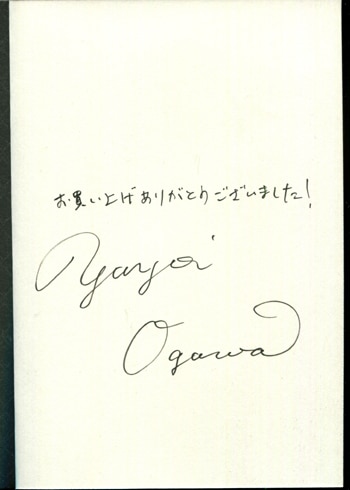 お買い上げありがとうございました!
Yayoi
Ogawa